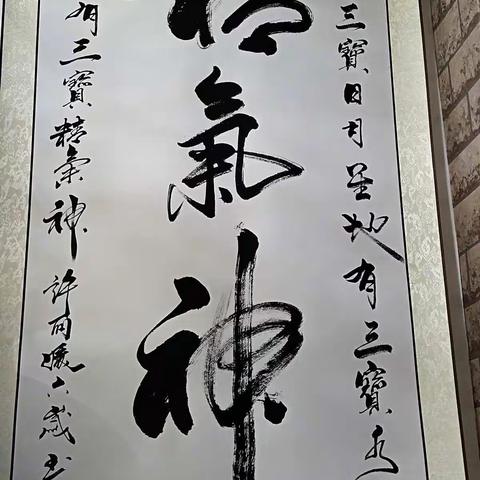 三寶日月星地有三寶水
精氣神
有三寶精氣神 許 六歲书